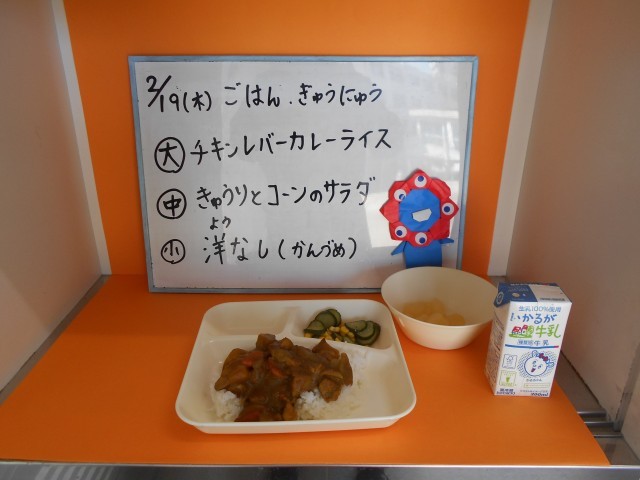 2/19(木) ごはん.きゅうにゅう
大 チキンレバーカレーライス
中 きゅうりとコーンのサラダ
よう
小 洋なし(かんづめ)
生乳100%使用
いかるが
牛乳